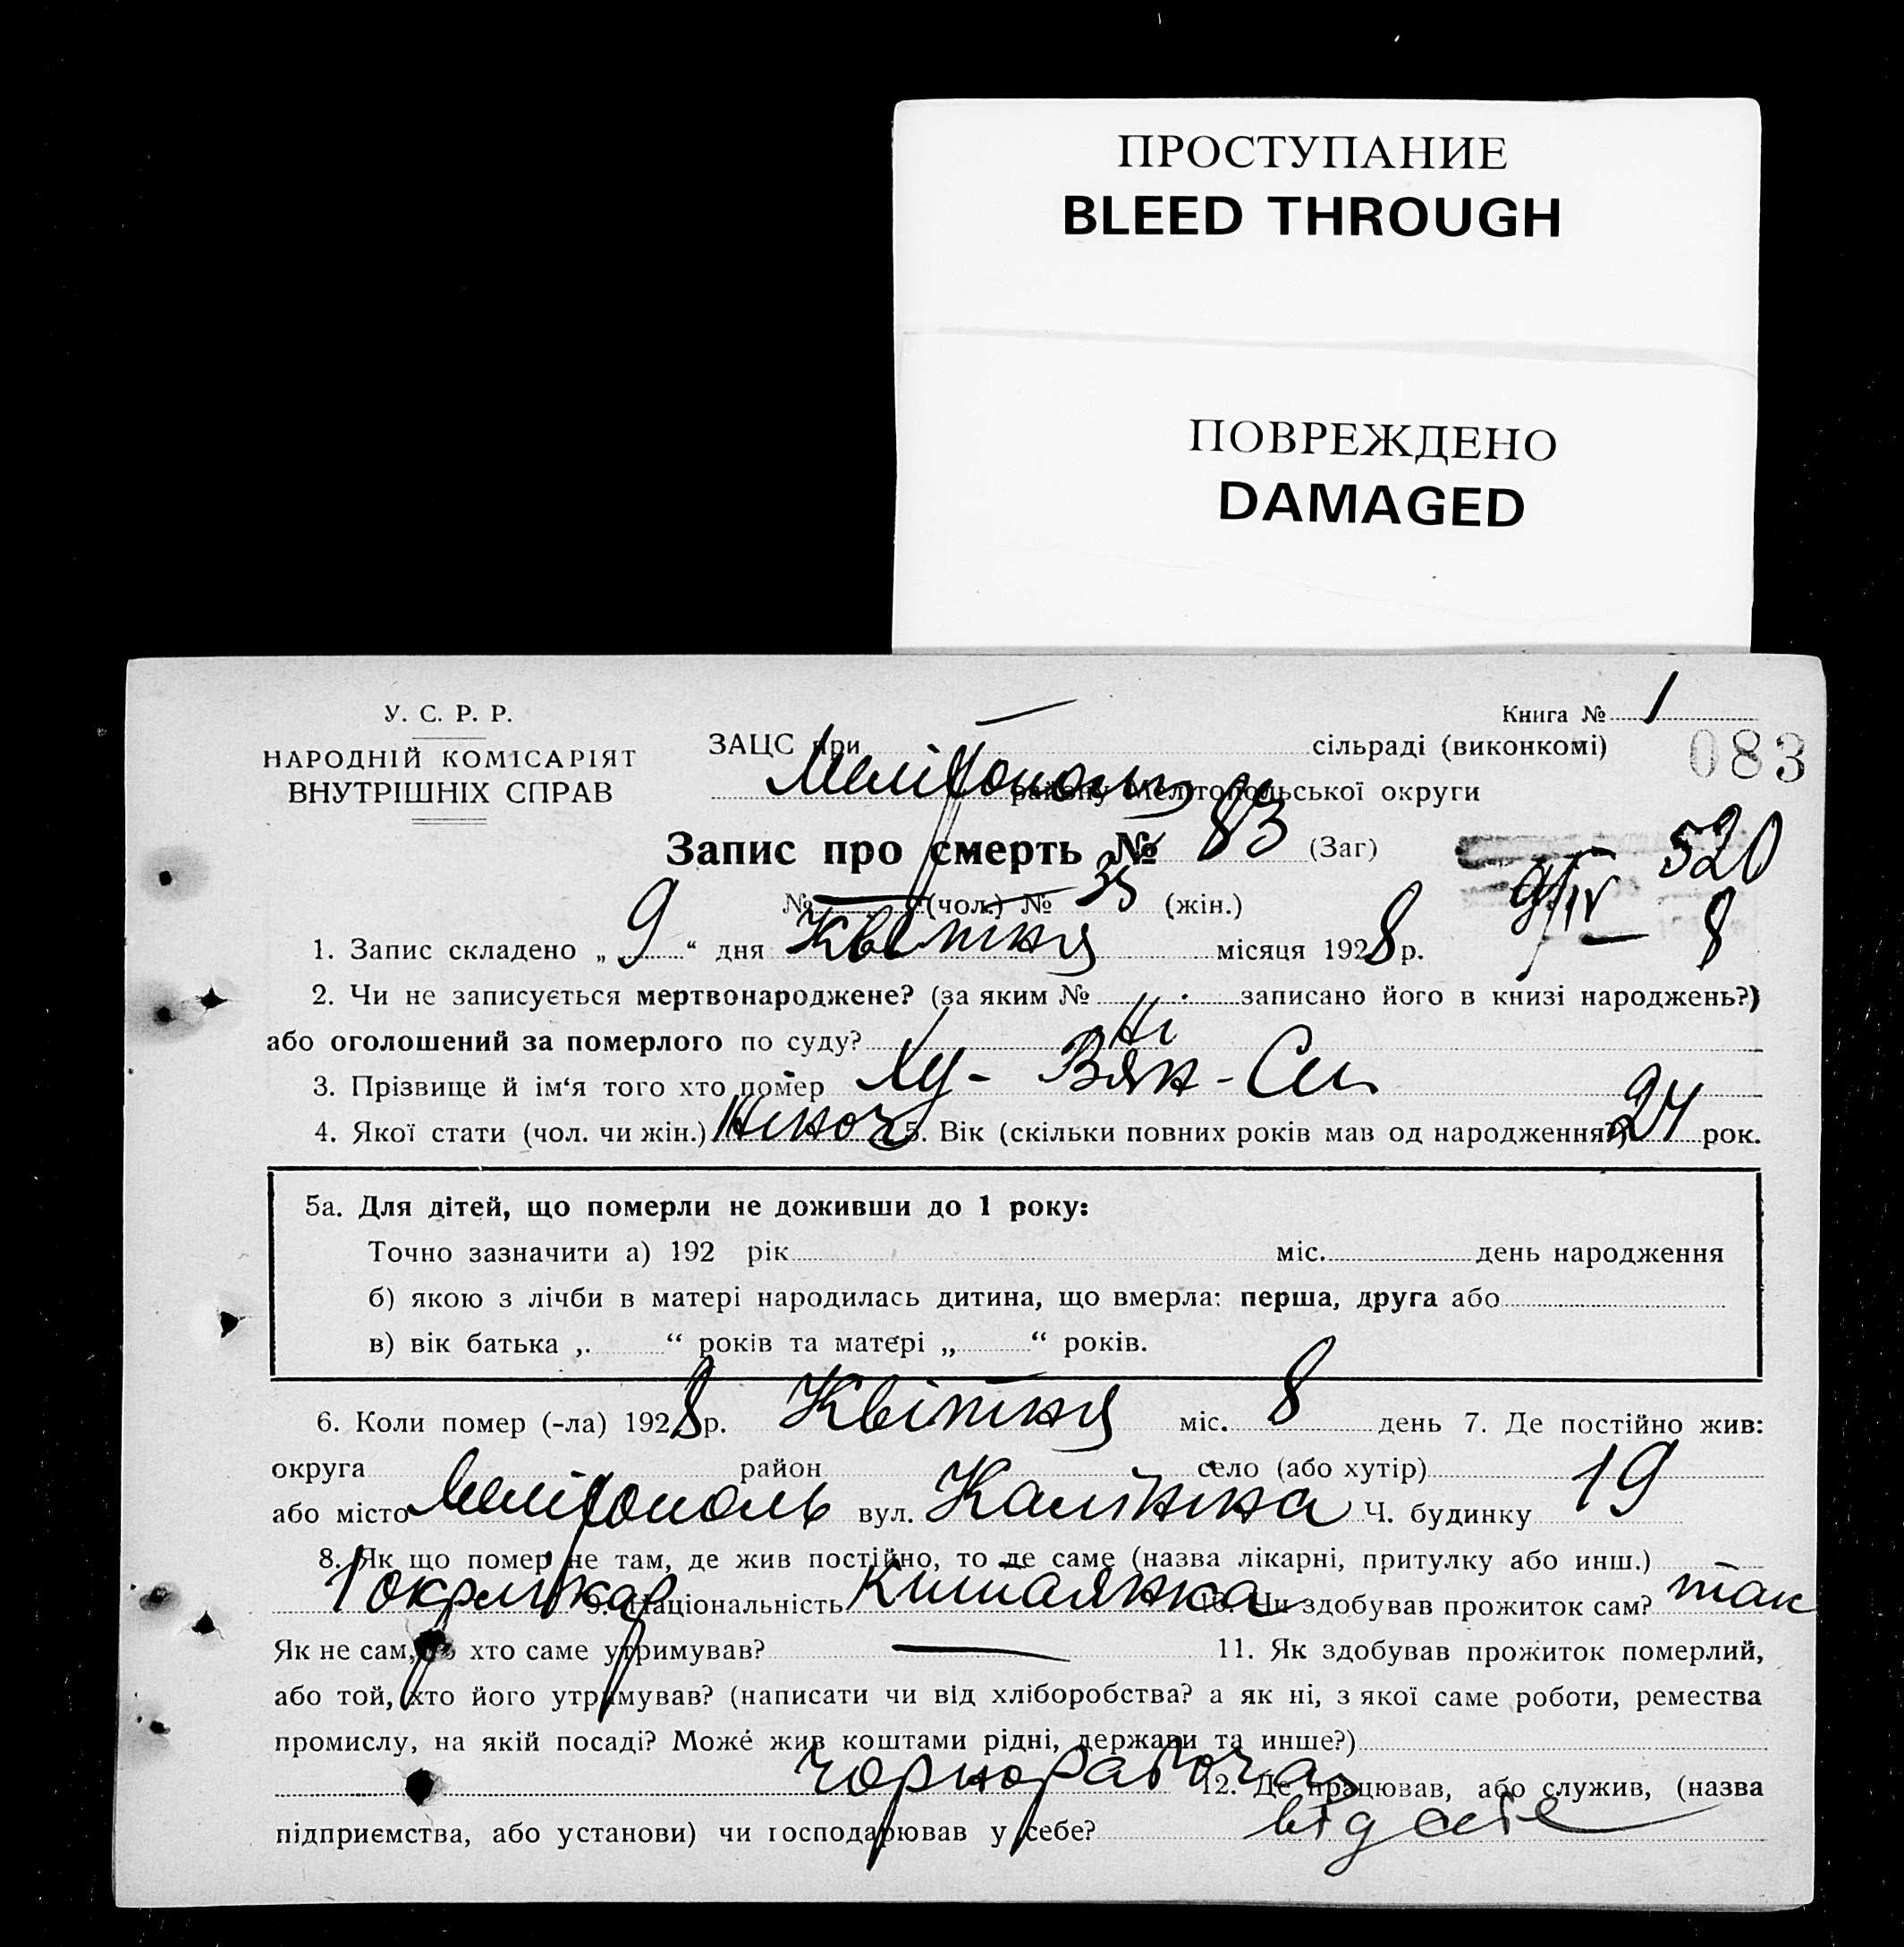 ПРОСТУПАНИЕ
BLEED THROUGH
ПОВРЕЖДЕНО
DAMAGED
У. С. Р. Р.
НАРОДНІЙ КОМІСАРІЯТ
ВНУТРІШНІХ СПРАВ
Книга № 1
ЗАЦС при — сільраді (виконкомі)
083
Мелітопольськ району Мелітопольської округи
Запис про смерть № 83 (Заг)
520
№ — (чол.) № 35 (жін.)
9/IV — 8
1. Запис складено „ 9 “ дня Квітня місяця 1928 р.
2. Чи не записується мертвонароджене? (за яким № записано його в книзі народжень?)
або оголошений за померлого по суду? Ні
3. Прізвище й ім‘я того хто помер Ху-Вян-Си
4. Якої стати (чол. чи жін.) Жіноч 5. Вік (скільки повних років мав од народження?) 24 рок.
5а. Для дітей, що померли не доживши до 1 року:
Точно зазначити а) 192 рік міс. день народження
б) якою з лічби в матері народилась дитина, що вмерла: перша, друга або
в) вік батька „ “ років та матері „ “ років.
6. Коли помер (-ла) 1928 р. Квітня міс. 8 день 7. Де постійно жив:
округа район село (або хутір)
або місто Мелітополь вул. Калініна Ч. будинку 19
8. Як що помер не там, де жив постійно, то де саме (назва лікарні, притулку або инш.)
1 окрлікар 9. Національність Китаянка 10. Чи здобував прожиток сам? так
Як не сам, то хто саме утримував? — 11. Як здобував прожиток померлий,
або той, хто його утримував? (написати чи від хліборобства? а як ні, з якої саме роботи, ремества
промислу, на якій посаді? Може жив коштами рідні, держави та инше?)
чорноработча 12. Де працював, або служив, (назва
підприємства, або установи) чи господарював у себе?